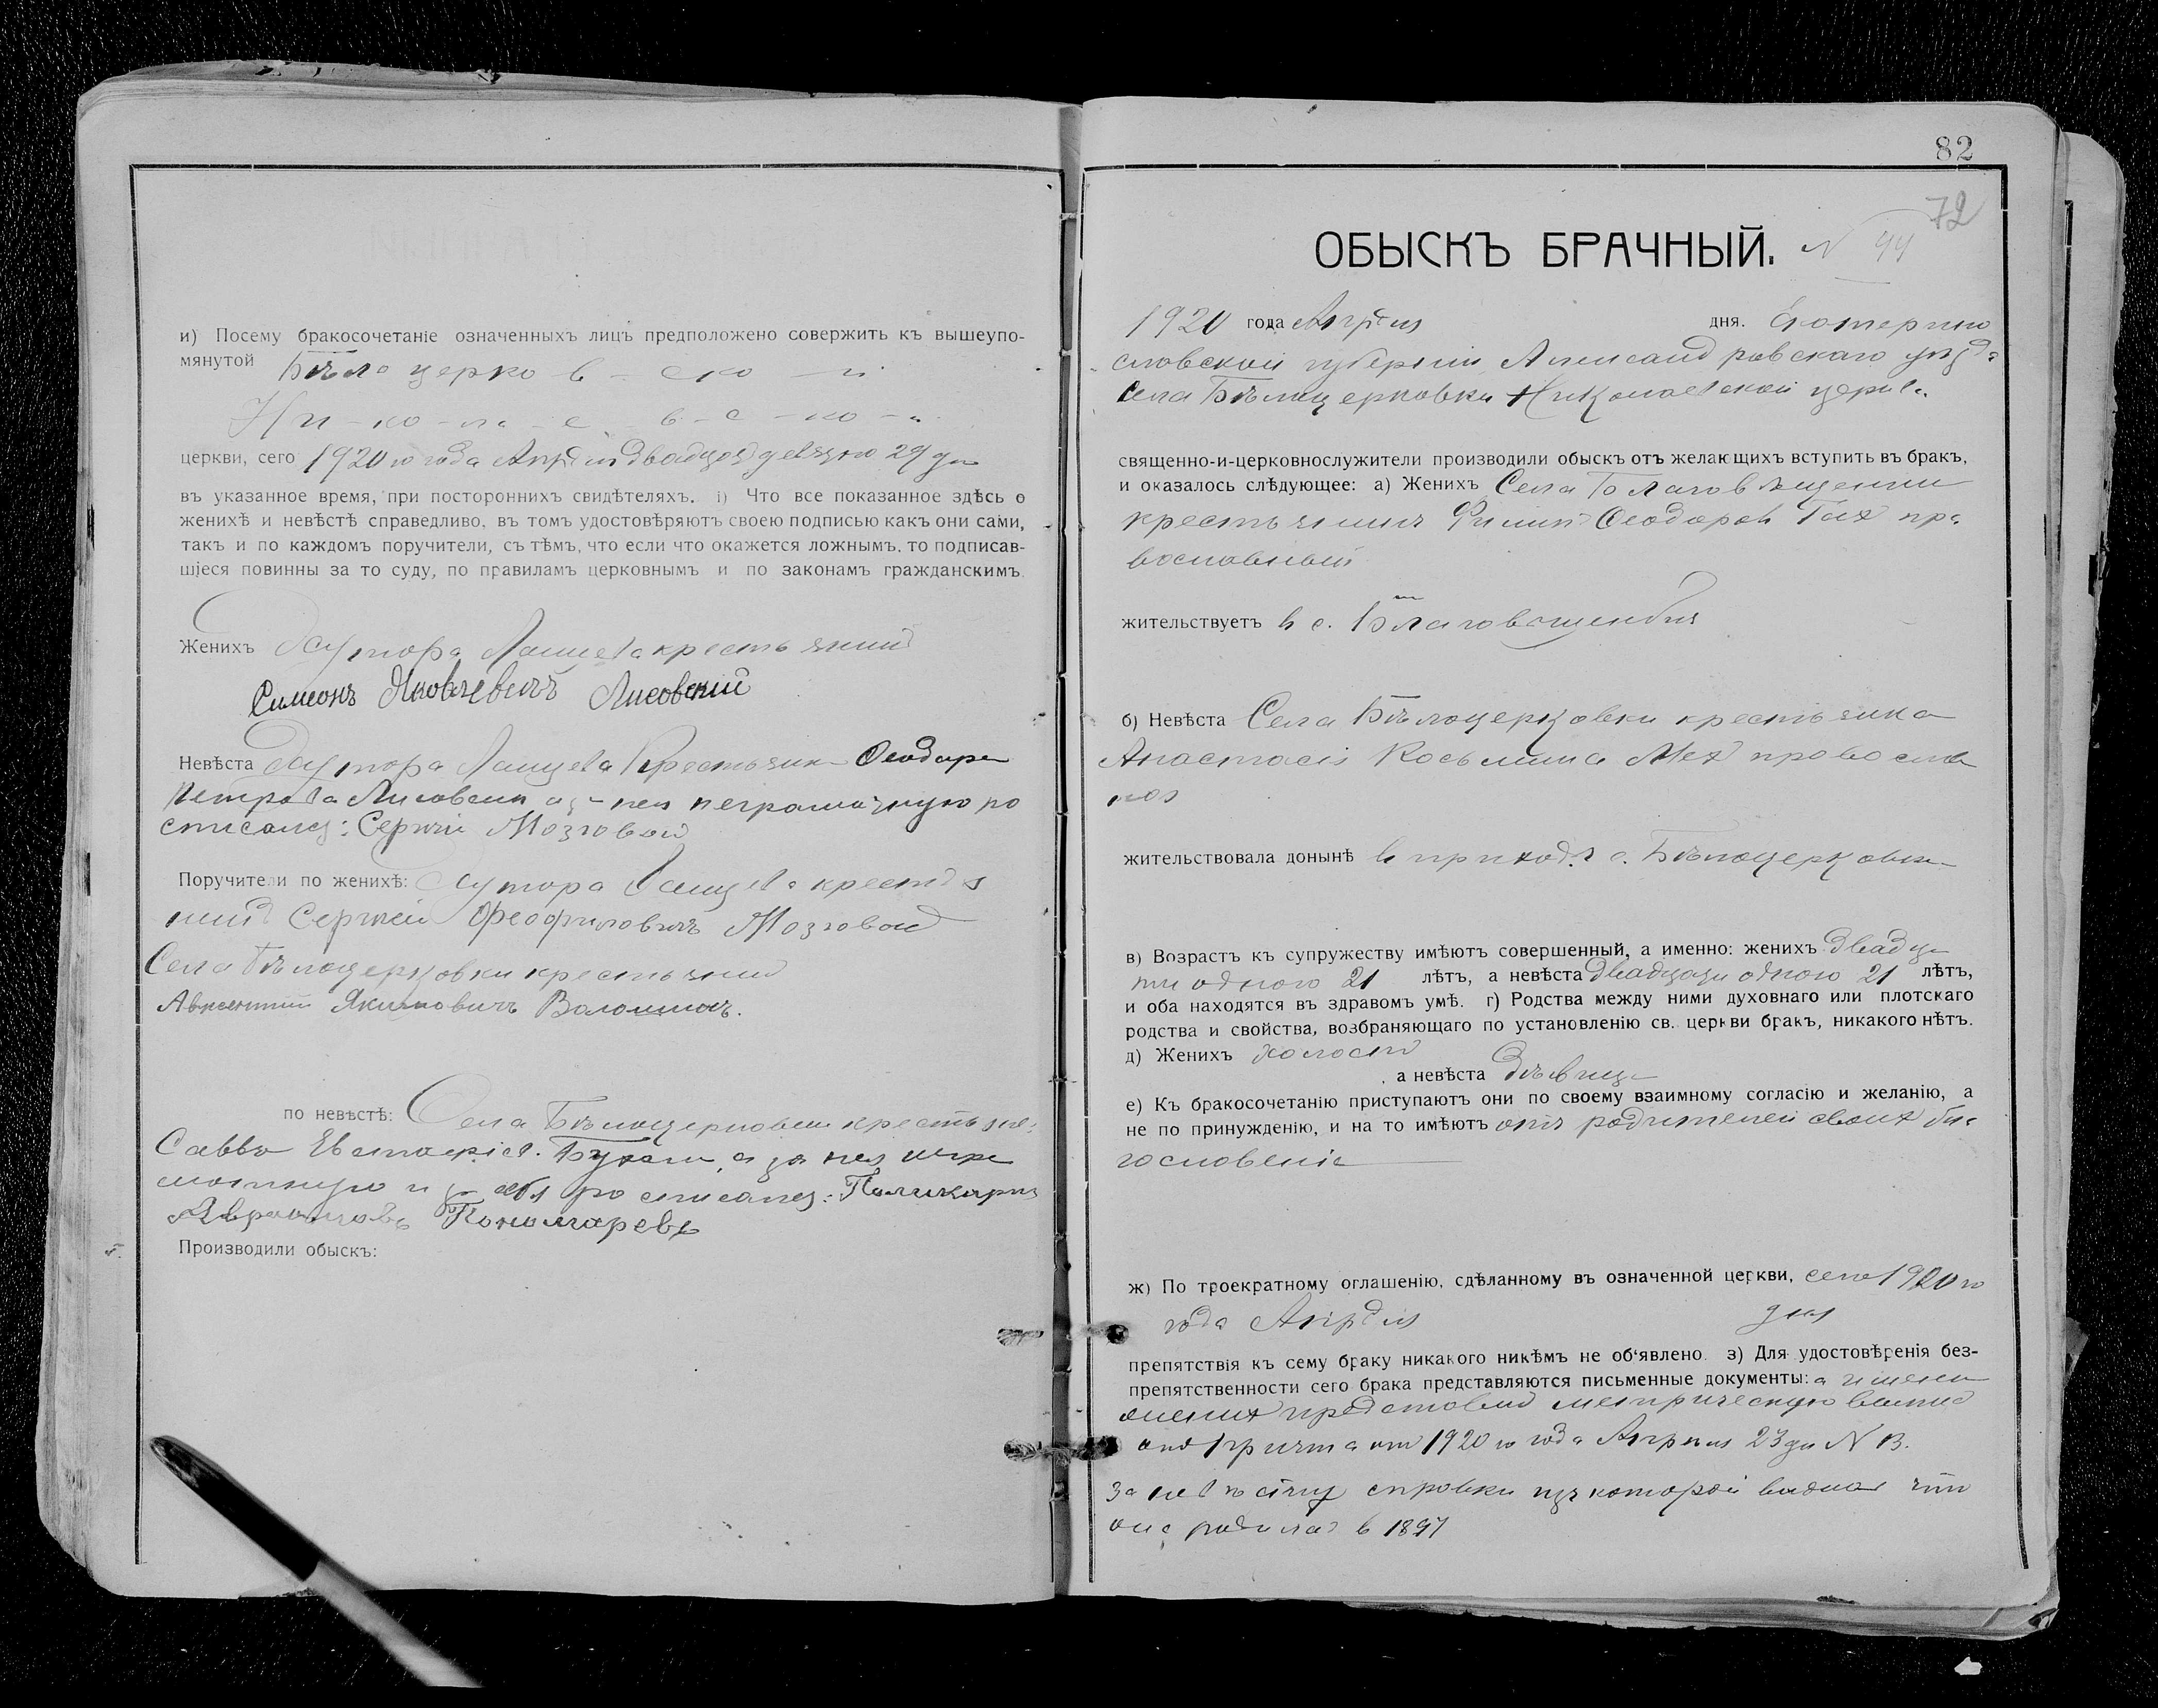 и) Посему бракосочетаніе означенныхъ лицъ предположено совержить къ вышеупо-
мянутой Бѣло церко в - ско - й
Ни - ко - ла - е - в - с - ко - й
церкви, сего 1920 го года Апрѣля двадцать девятаго 29 дня
въ указанное время, при постороннихъ свидѣтеляхъ. і) Что все показанное здѣсь о
женихѣ и невѣстѣ справедливо, въ томъ удостовѣряютъ своею подписью какъ они сами,
такъ и по каждомъ поручители, съ тѣмъ, что если что окажется ложнымъ, то подписав-
шіеся повинны за то суду, по правиламъ церковнымъ и по законамъ гражданскимъ.
Женихъ Хутора крестьянинъ
Симеонъ Яковлевичъ Лисовскій
Невѣста Хутора Крестьянка Ѳеодора
Петрова Лисовска, а за нея неграмотную ро
списался: Сергѣй Мозговой
Поручители по женихѣ: Хутора крестья
нинъ Сергѣй Феофиловичъ Мозговой
Села Бѣлоцерковки крестьянинъ
Авксентій Якимовичъ Волошинъ.
по невѣстѣ: Села Бѣлоцерковки крестьяне:
Савва а за нея негра
мотную и за себя росписался: Поликарпъ
Пономаревъ
Производили обыскъ:
82
72
ОБЫСКЪ БРАЧНЫЙ. N 44
1920 года Апрѣля дня. Екатерино
славской губерніи Александровскаго уѣзда
Села Бѣлоцерковки Николаевской церкви
священно-и-церковнослужители производили обыскъ отъ желающихъ вступить въ бракъ,
и оказалось слѣдующее: а) Женихъ Села Благовѣщенки
крестьянинъ Филипъ Ѳеодоровъ пра
вославный
жительствуетъ в с. Благовѣщенкѣ
б) Невѣста Села Бѣлоцерковки крестьянка
Анастасія Косьмина православ
ноя
жительствовала донынѣ в приходѣ с. Бѣлоцерковки
в) Возрастъ къ супружеству имѣютъ совершенный, а именно: женихъ двадца
ти одного 21 лѣтъ, а невѣста двадцати одного 21 лѣтъ,
и оба находятся въ здравомъ умѣ. г) Родства между ними духовнаго или плотскаго
родства и свойства, возбраняющаго по установленію св. церкви бракъ, никакого нѣтъ.
д) Женихъ холостъ
, а невѣста Дѣвица
е) Къ бракосочетанію приступаютъ они по своему взаимному согласію и желанію, а
не по принужденію, и на то имѣютъ отъ родителей своих бла
гословеніе
ж) По троекратному оглашенію, сдѣланному въ означенной церкви, сего 1920 го
года Апрѣля дня
препятствія къ сему браку никакого никѣмъ не об'явлено. з) Для удостовѣренія без-
препятственности сего брака представляются письменные документы: а именно
женихъ представилъ метрическую выпис
отъ Причта от 1920 го года Апрѣля 23 дня N 13.
За невѣсту справки изъ которой видно что
она родилась в 1897